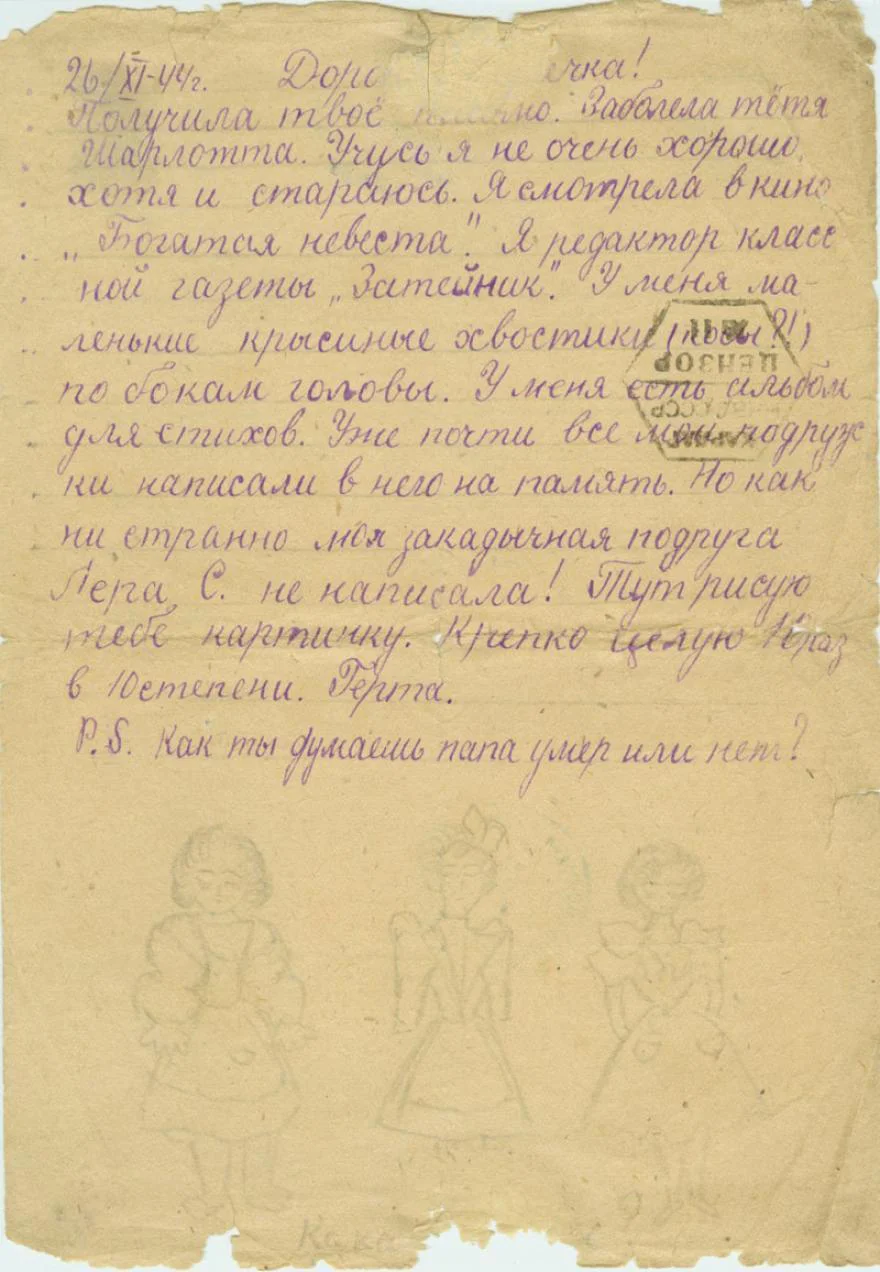 26/XI-44г. Доро ечка!
Получила твоё письмо. Заболела тётя
Шарлотта. Учусь я не очень хорошо,
хотя и стараюсь. Я смотрела в кино
„Богатая невеста". Я редактор класс
ной газеты „Затейник". У меня ма-
ленькие крысиные хвостики (косы?!)
по бокам головы. У меня есть альбом
для стихов. Уже почти все мои подруж
ки написали в него на память. Но как
ни странно моя закадычная подруга
Лера С. не написала! Тут рисую
тебе картинку. Крепко целую 10 раз
в 10 степени. Герта.
P.S. Как ты думаешь папа умер или нет?
ЦЕНЗОР
СССР